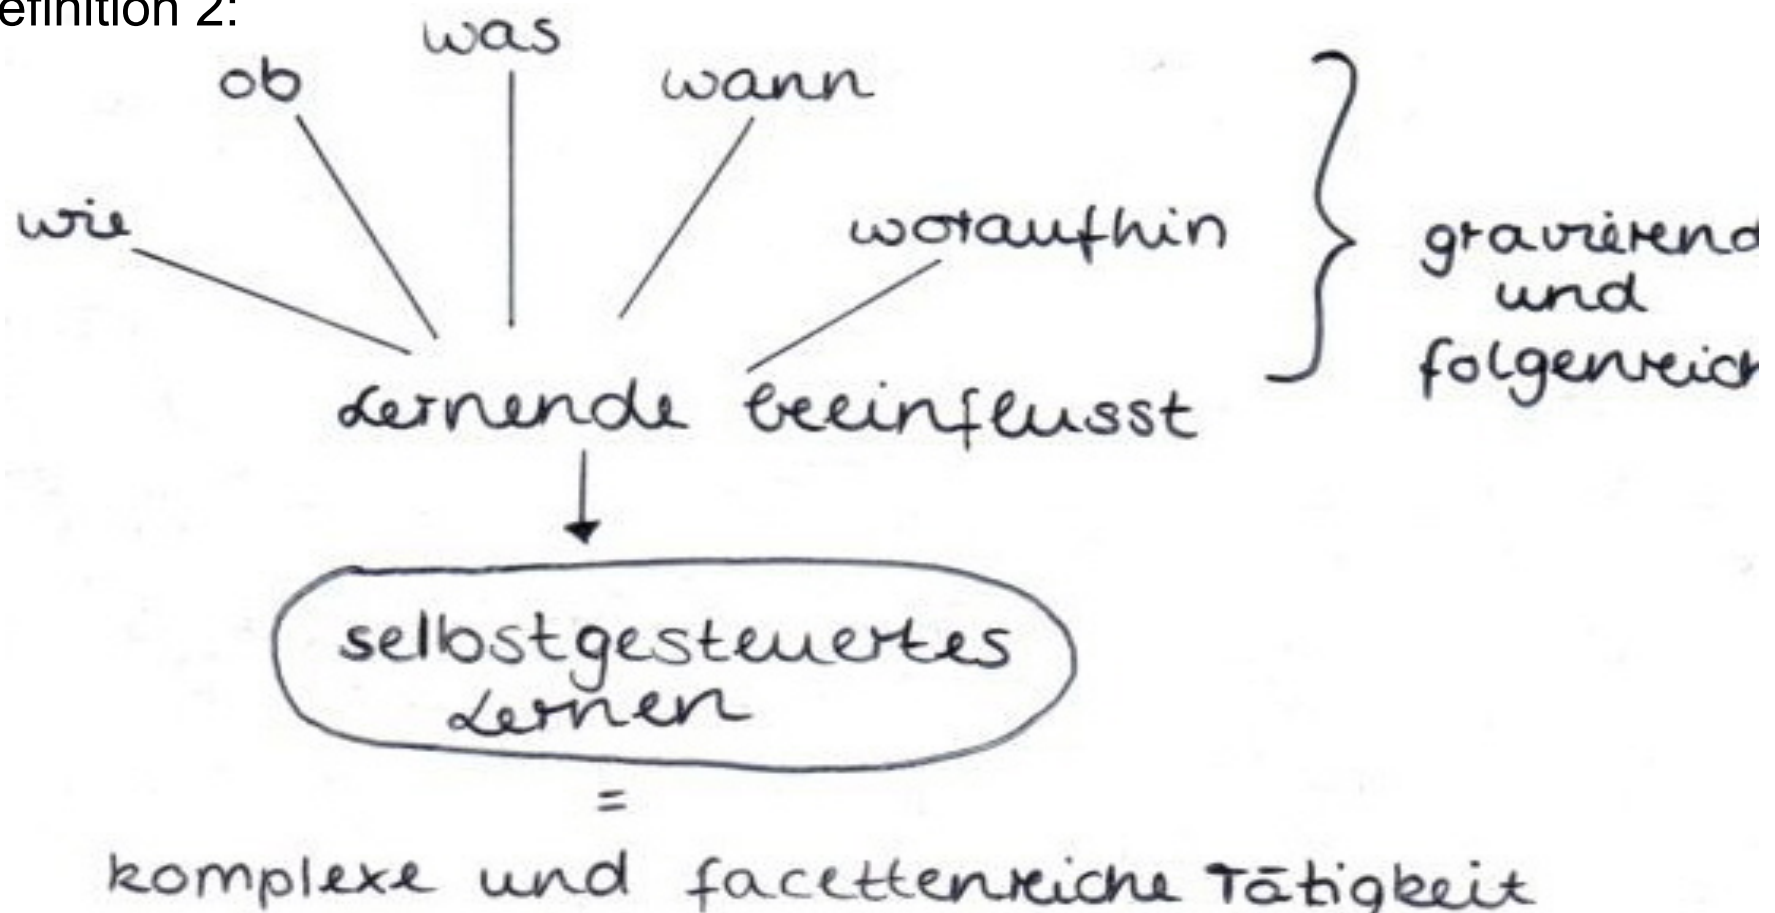 efinition 2:
was
ob
wann
wie
woraufhin
gravierend
und
folgenreich
Lernende beeinflusst
selbstgesteuertes
Lernen
=
komplexe und facettenreiche Tätigkeit